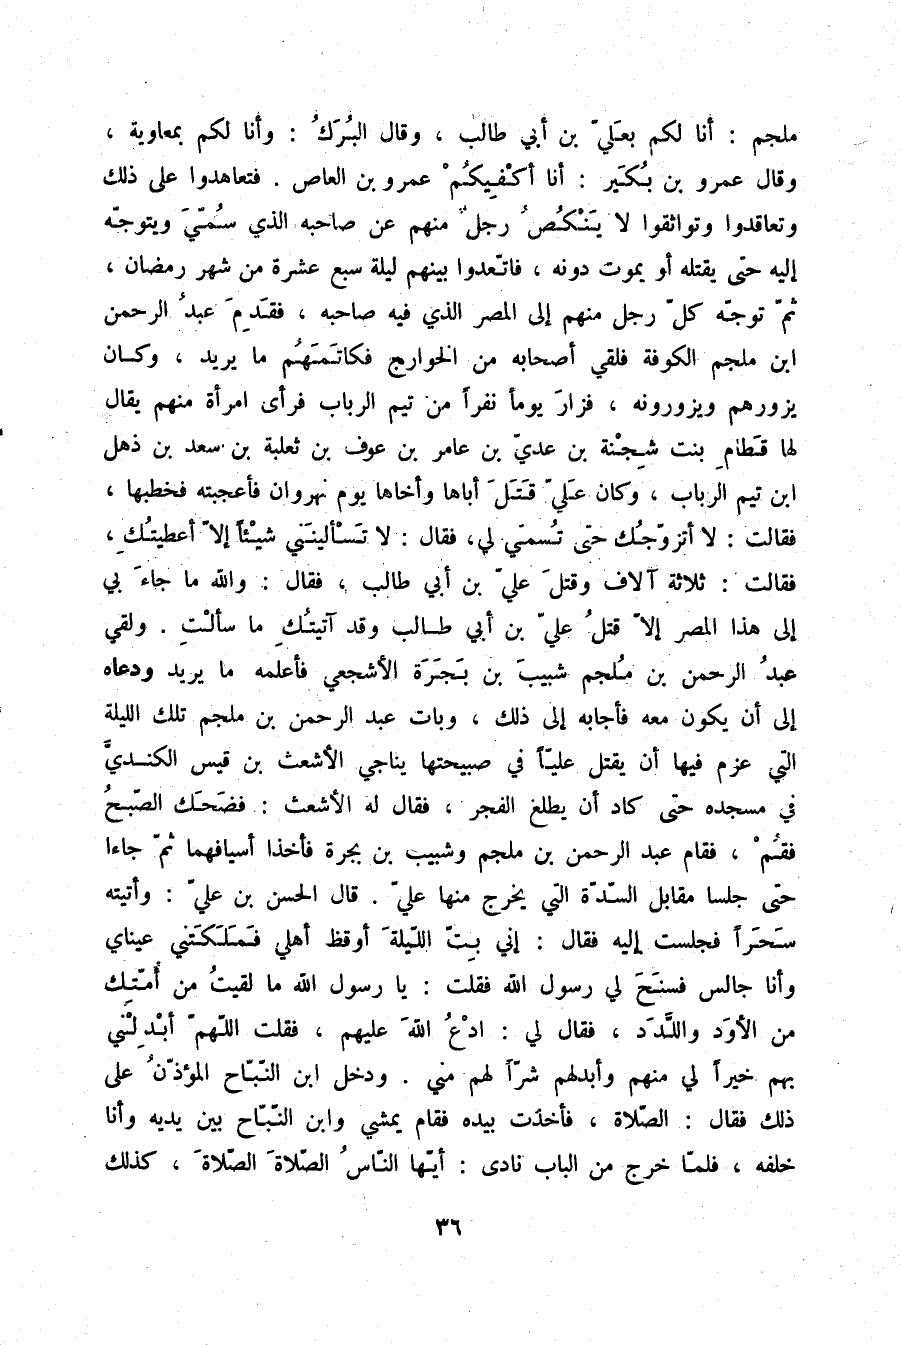 ملجم : أنا لكم بعَليّ بن أبي طالب ، وقال البُرَكُ : وأنا لكم بمعاوية ،
وقال عمرو بن بُكَير : أنا أكْفِيكُمْ عمرو بن العاص . فتعاهدوا على ذلك
وتعاقدوا وتواثقوا لا يَنْكُصُ رجلٌ منهم عن صاحبه الذي سُمّيَ ويتوجّه
إليه حتّى يقتله أو يموت دونه ، فاتّعدوا بينهم ليلة سبع عشرة من شهر رمضان ،
ثمّ توجّه كلّ رجل منهم إلى المصر الذي فيه صاحبه ، فقَدِمَ عبدُ الرحمن
ابن ملجم الكوفة فلقي أصحابه من الخوارج فكاتَمَهُم ما يريد ، وكان
يزورهم ويزورونه ، فزارَ يوماً نفراً من تيم الرباب فرأى امرأة منهم يقال
لها قَطامِ بنت شِجْنة بن عديّ بن عامر بن عوف بن ثعلبة بن سعد بن ذهل
ابن تيم الرباب ، وكان عَليّ قَتَلَ أباها وأخاها يوم نهروان فأعجبته فخطبها ،
فقالت : لا أتزوّجُك حتّى تُسمّي لي، فقال : لا تَسْألينَني شيْئاً إلاّ أعطيتُكِ ،
فقالت : ثلاثة آلاف وقتلَ عليّ بن أبي طالب ، فقال : والله ما جاءَ بي
إلى هذا المصر إلاّ قتلُ عليّ بن أبي طالب وقد آتيتُكِ ما سألْتِ . ولقي
عبدُ الرحمن بن مُلجم شبيبَ بن بَجَرَة الأشجعي فأعلمه ما يريد ودعاه
إلى أن يكون معه فأجابه إلى ذلك ، وبات عبد الرحمن بن ملجم تلك الليلة
التي عزم فيها أن يقتل عليّاً في صبيحتها يناجي الأشعث بن قيس الكنديَّ
في مسجده حتّى كاد أن يطلع الفجر ، فقال له الأشعث : فضَحَك الصّبحُ
فقُمْ ، فقام عبد الرحمن بن ملجم وشبيب بن بجرة فأخذا أسيافهما ثمّ جاءا
حتّى جلسا مقابل السّدّة التي يخرج منها عليّ . قال الحسن بن عليّ : وأتيته
سَحَراً فجلست إليه فقال : إني بِتّ اللّيلةَ أوقظ أهلي فَمَلَكَتني عيناي
وأنا جالس فسنَحَ لي رسول الله فقلت : يا رسول الله ما لقيتُ من أُمّتِك
من الأوَد واللَّدَد ، فقال لي : ادْعُ اللهَ عليهم ، فقلت اللّهمّ أبْدِلْني
بهم خيراً لي منهم وأبدلهم شرّاً لهم مني . ودخل ابن النّبّاح المؤذّنُ على
ذلك فقال : الصّلاة ، فأخذت بيده فقام يمشي وابن النّبّاح بين يديه وأنا
خلفه ، فلمّا خرج من الباب نادى : أيّها النّاسُ الصّلاةَ الصّلاةَ ، كذلك
٣٦